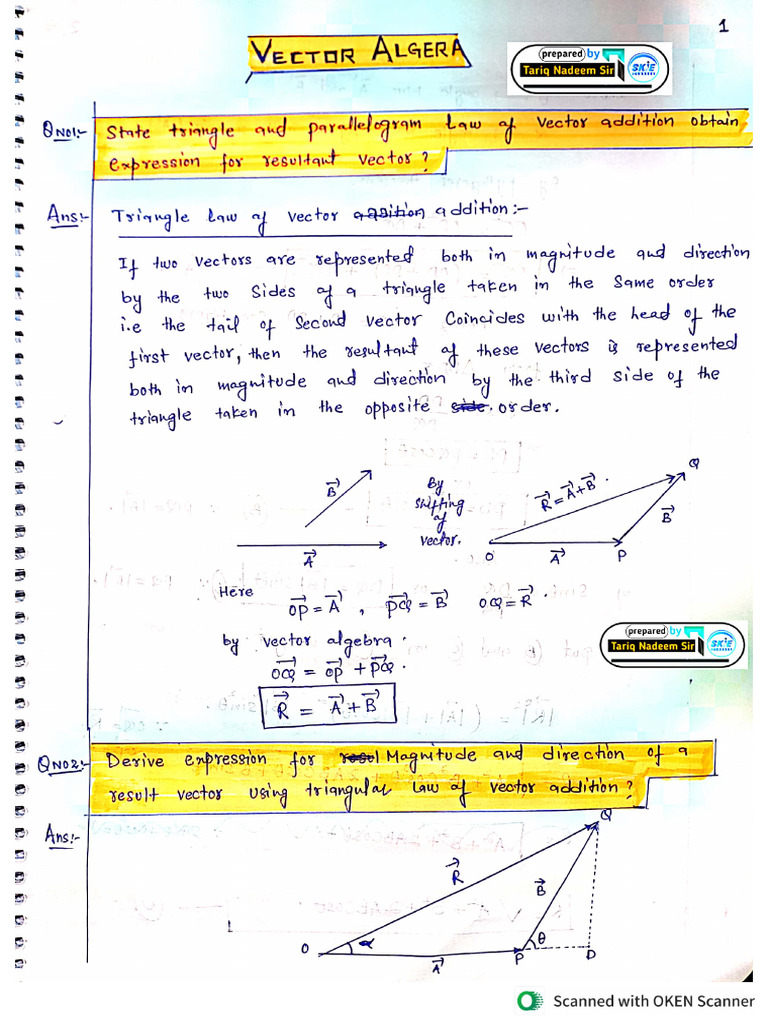 1
VECTOR ALGERA
prepared by
Tariq Nadeem Sir
SKIE
Q NO1:- State triangle and parallelogram Law of Vector addition obtain
expression for resultant vector?
Ans:- Triangle Law of vector addition addition:-
If two vectors are represented both in magnitude and direction
by the two Sides of a triangle taken in the Same order
i.e the tail of Second vector Coincides with the head of the
first vector, then the resultant of these vectors is represented
both in magnitude and direction by the third side of the
triangle taken in the opposite side. order.
B⃗
A⃗
By
shifting
of
vector.
R⃗ = A⃗ + B⃗ .
Q
B⃗
O A⃗ P
Here
OP⃗ = A⃗ , PQ⃗ = B⃗ OQ = R⃗ .
by vector algebra .
OQ⃗ = OP⃗ + PQ⃗ .
R⃗ = A⃗ + B⃗
prepared by
Tariq Nadeem Sir
SKIE
Q NO2:- Derive expression for resul Magnitude and direction of a
result vector using triangular Law of vector addition?
Ans:-
Q
R⃗
B⃗
O α θ
A⃗ P D
1
Scanned with OKEN Scanner